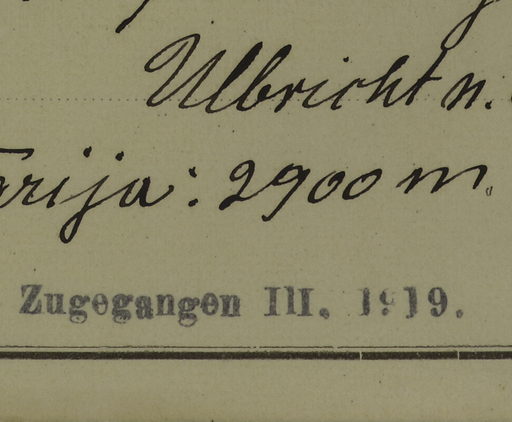 Ulbricht n.
arija: 2900 m.
Zugegangen III. 1919.